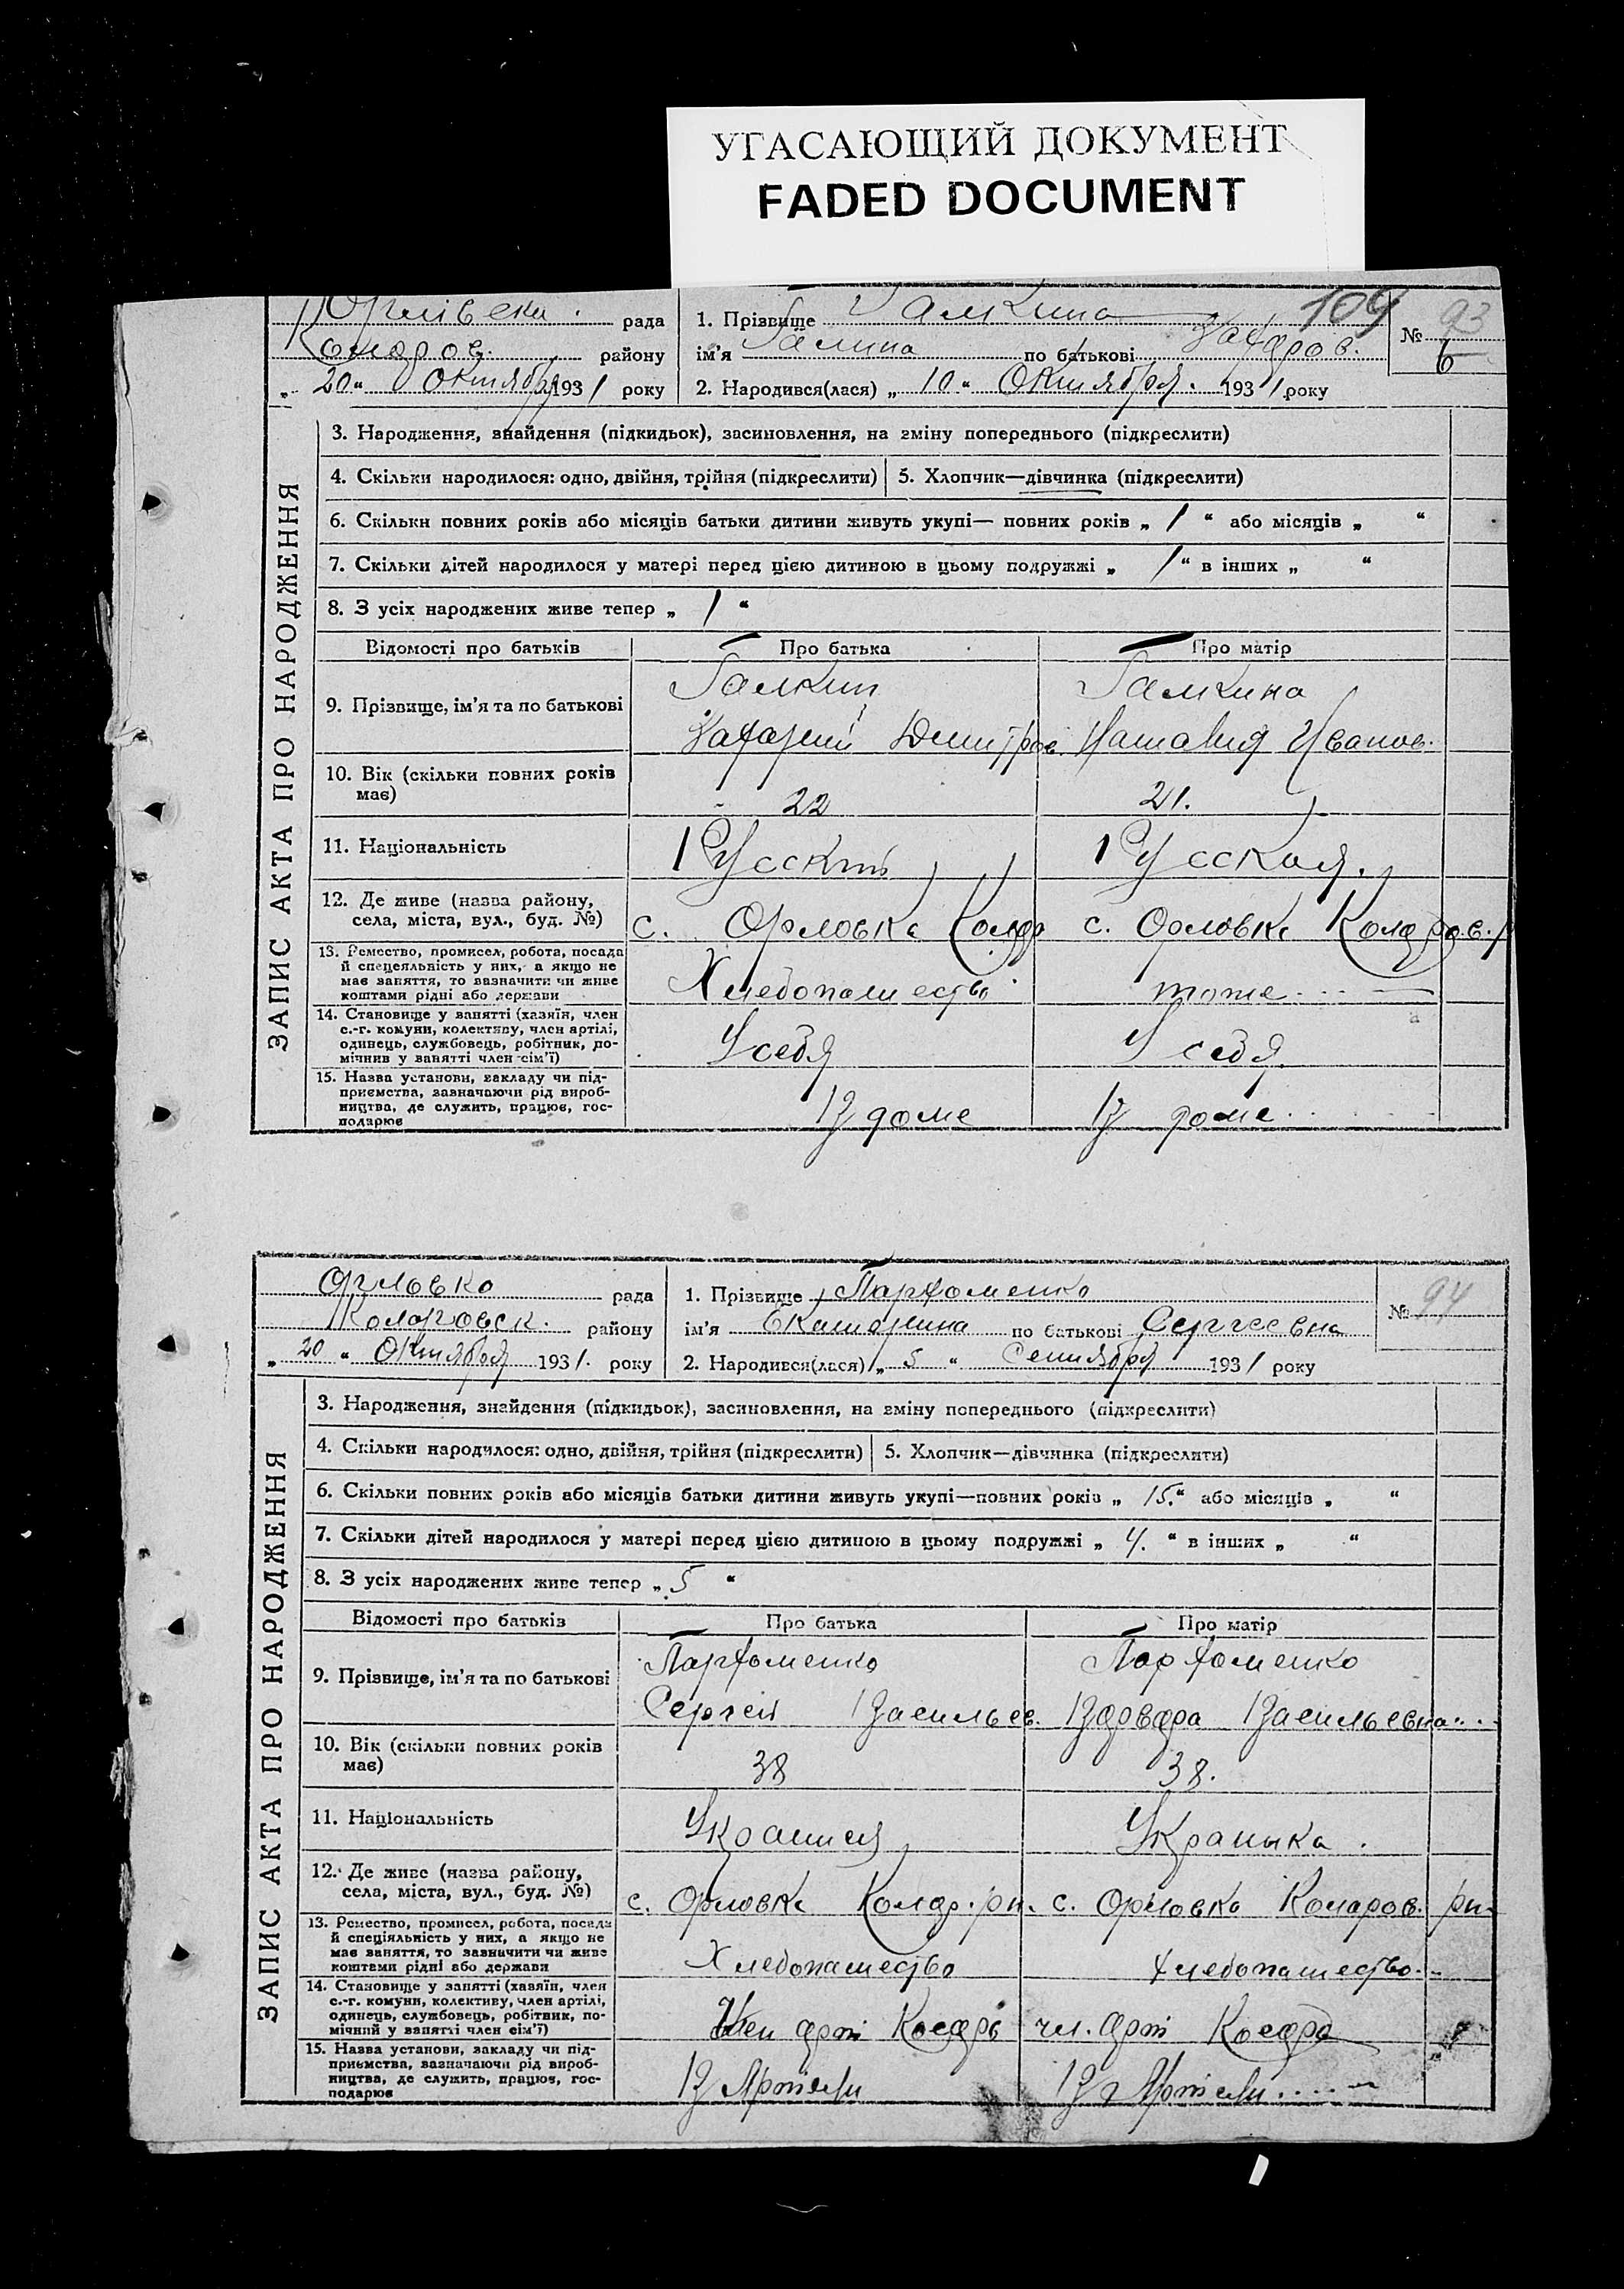 УГАСАЮЩИЙ ДОКУМЕНТ
FADED DOCUMENT
рада
Коларов. району
„ 20 “ Октября 1931 року
1. Прізвище Галкина
109
ім'я Галина по батькові Захаров.
2. Народився(лася) „ 10 “ Октября. 1931 року
№ 93
6
ЗАПИС АКТА ПРО НАРОДЖЕННЯ
3. Народження, знайдення (підкидьок), засиновлення, на зміну попереднього (підкреслити)
4. Скільки народилося: одно, двійня, трійня (підкреслити) 5. Хлопчик—дівчинка (підкреслити)
6. Скільки повних років або місяців батьки дитини живуть укупі— повних років „ 1 “ або місяців „ “
7. Скільки дітей народилося у матері перед цією дитиною в цьому подружжі „ 1 “ в інших „ “
8. З усіх народжених живе тепер „ 1 “
Відомості про батьків Про батька Про матір
9. Прізвище, ім'я та по батькові
Галкин
Захарий Дмитров.
Галкина
Наталия Иванов.
10. Вік (скільки повних років
має)
22 21.
11. Національність
Русский Русская.
12. Де живе (назва району,
села, міста, вул., буд. №)
с. Орловка Колар с. Орловка Коларов. р
13. Ремество, промисел, робота, посада
й спецеяльність у них, а якщо не
має заняття, то зазначити чи живе
коштами рідні або держави
Хлебопашество тоже
14. Становище у занятті (хазяїн, член
с.-г. комуни, колективу, член артілі,
одинець, службовець, робітник, по-
мічнив у занятті член сім'ї)
У себя У себя
15. Назва установи, закладу чи під-
приємства, зазначаючи рід вироб-
ництва, де служить, працює, гос-
подарює
В доме В доме
Орловко рада
Коларовск. району
„ 20 “ Октября 1931. року
1. Прізвище Парфоменко
ім'я Екатерина по батькові Сергеевна
2. Народився(лася) „ 5 “ Сентября 1931 року
№ 94
ЗАПИС АКТА ПРО НАРОДЖЕННЯ
3. Народження, знайдення (підкидьок), засиновлення, на зміну попереднього (підкреслити)
4. Скільки народилося: одно, двійня, трійня (підкреслити) 5. Хлопчик—дівчинка (підкреслити)
6. Скільки повних років або місяців батьки дитини живуть укупі—повних років „ 15. “ або місяців „ “
7. Скільки дітей народилося у матері перед цією дитиною в цьому подружжі „ 4. “ в інших „ “
8. З усіх народжених живе тепер „ 5 “
Відомості про батьків Про батька Про матір
9. Прізвище, ім'я та по батькові
Парфоменко
Сергей Васильев.
Парфоменко
Варвара Васильевна
10. Вік (скільки повних років
має)
38 38.
11. Національність
12. Де живе (назва району,
села, міста, вул., буд. №)
с. Орловка Колар. рн. с. Орловка Коларов. рн.
13. Ремество, промисел, робота, посада
й спеціяльність у них, а якщо не
має заняття, то зазначити чи живе
коштами рідні або держави
Хлебопашество Хлебопашество
14. Становище у занятті (хазяїн, член
с.-г. комуни, колективу, член артілі,
одинець, службовець, робітник, по-
мічний у занятті член сім'ї)
Член арт чл. арт
15. Назва установи, закладу чи під-
приємства, зазначаючи рід вироб-
ництва, де служить, працює, гос-
подарює
В Артели В Артели